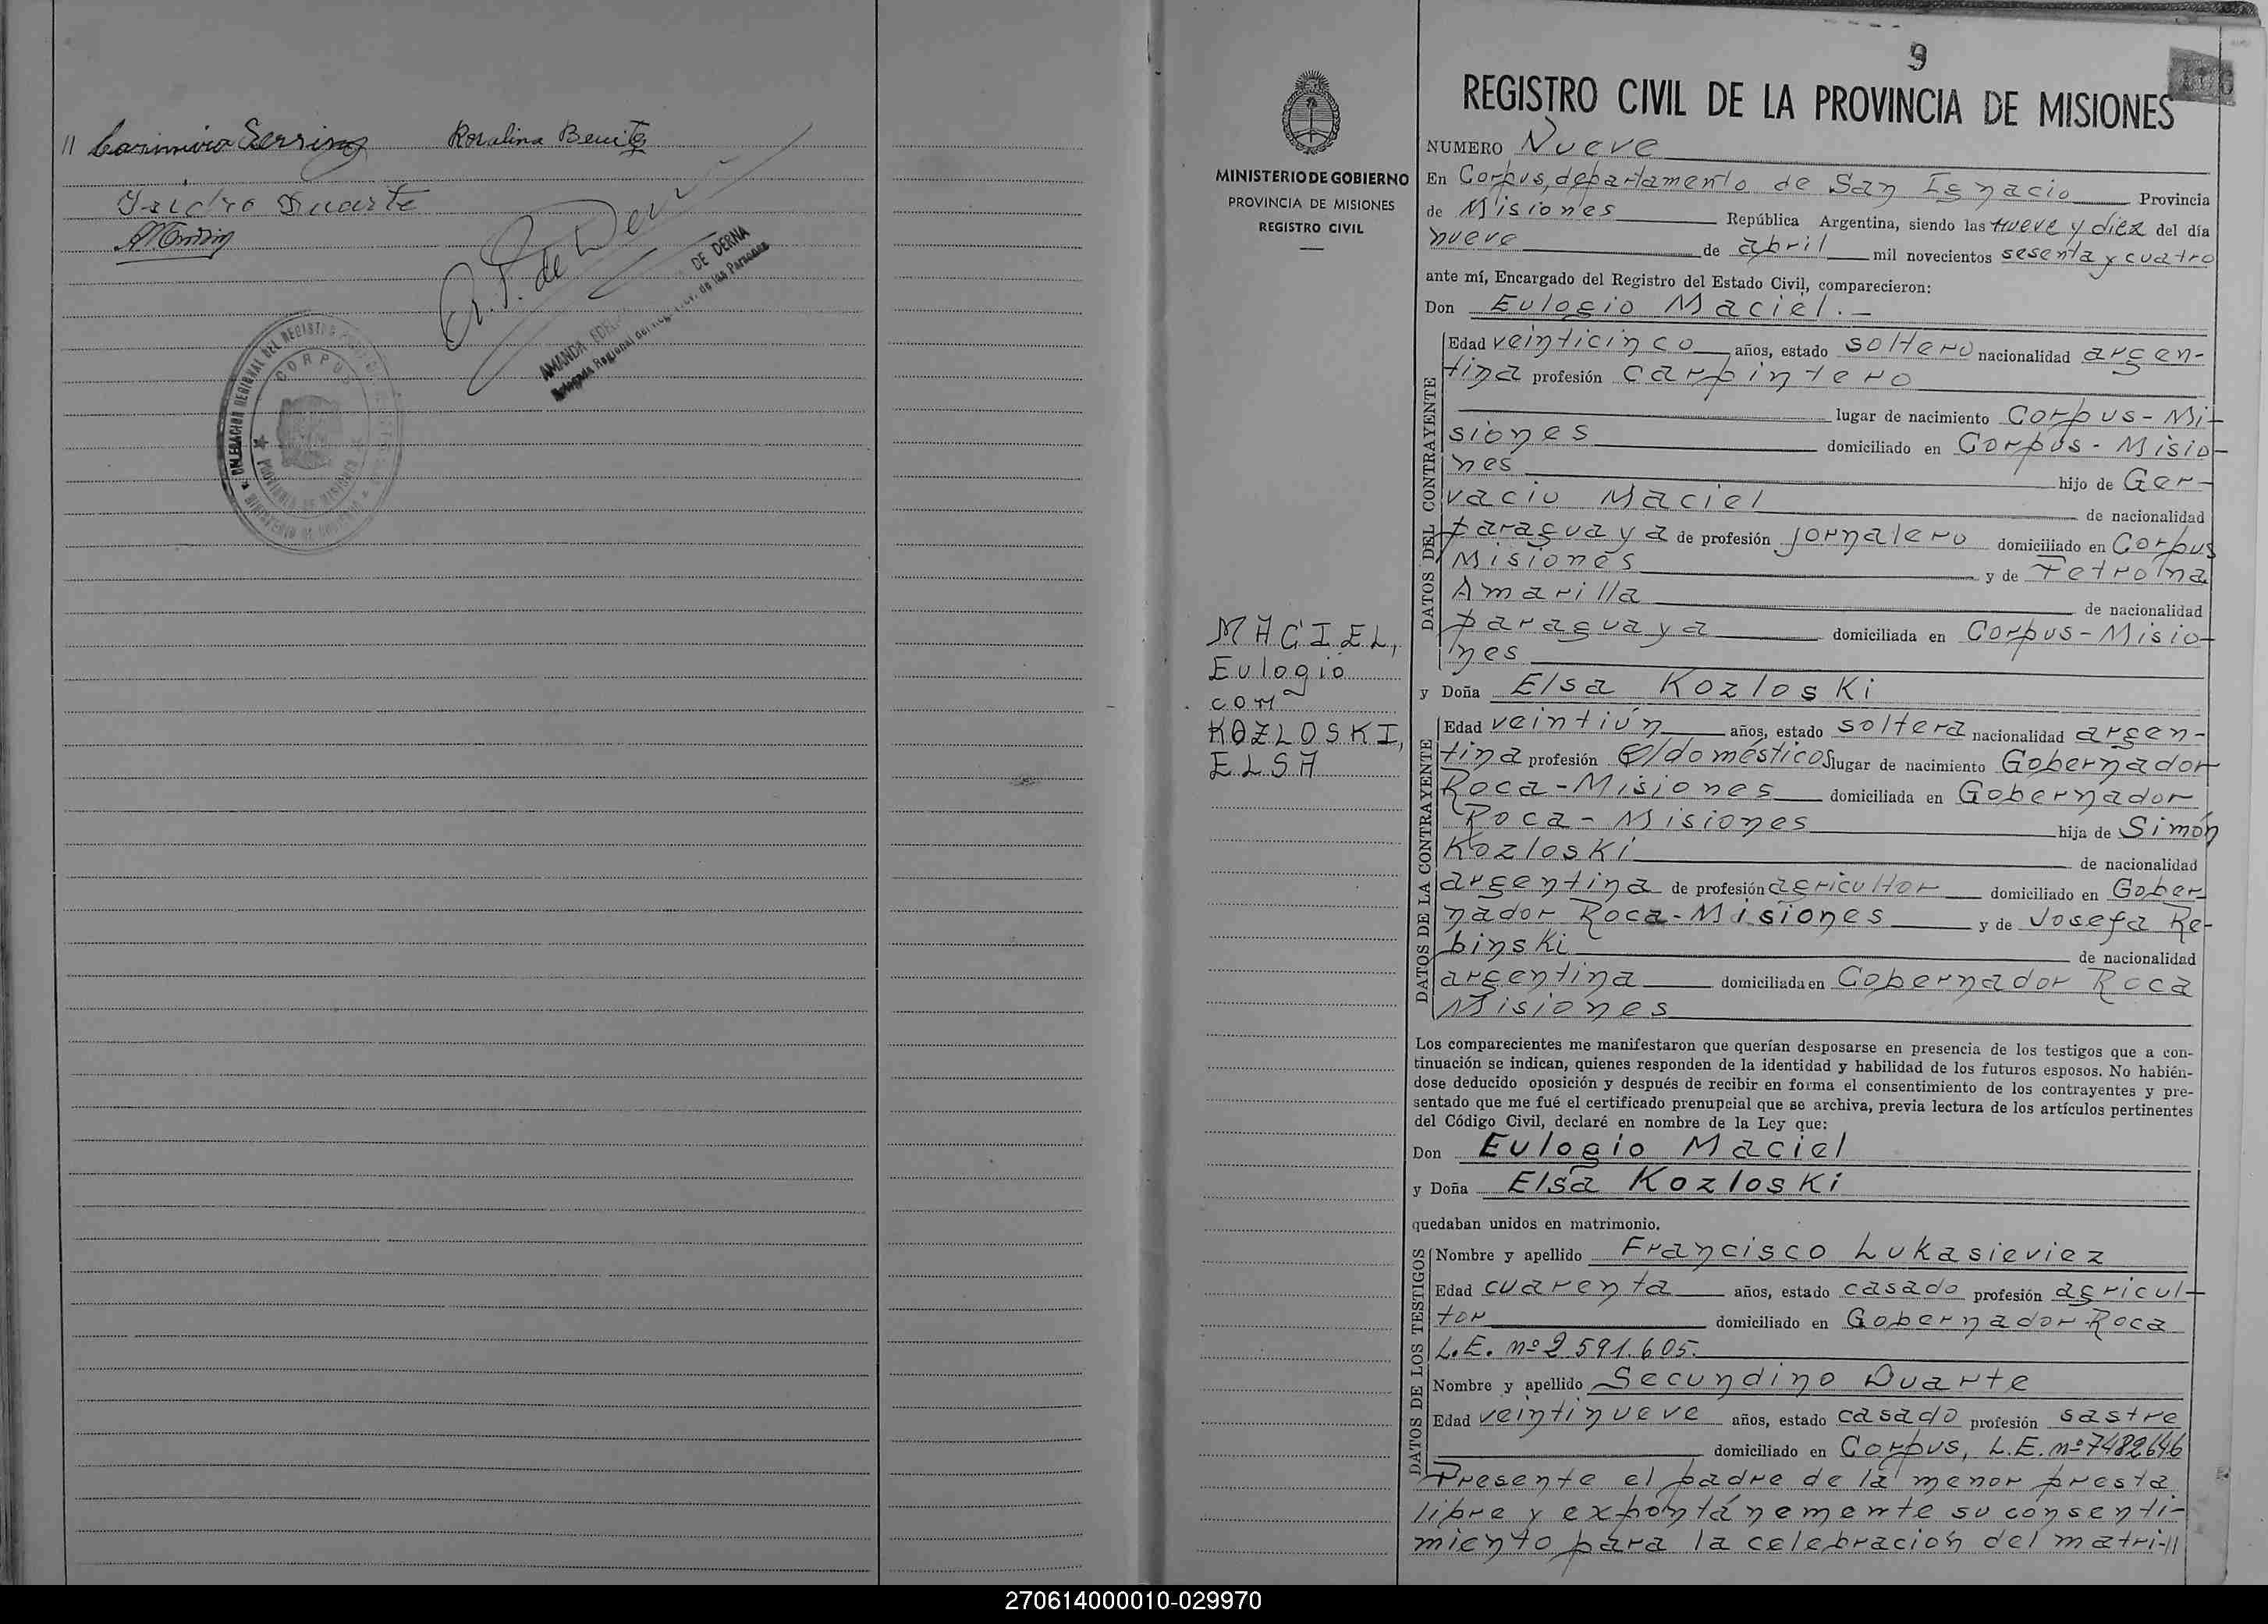 Rosalina Benitez
Isidro Duarte
DE DERNA
AMANDA
CORPUS
9
REGISTRO CIVIL DE LA PROVINCIA DE MISIONES
MINISTERIO DE GOBIERNO
PROVINCIA DE MISIONES
REGISTRO CIVIL
NUMERO Nueve
En Corpus, departamento de San Ignacio Provincia
de Misiones República Argentina, siendo las nueve y diez del día
nueve de abril mil novecientos sesenta y cuatro
ante mí, Encargado del Registro del Estado Civil, comparecieron:
Don Eulogio Maciel.-
DATOS DEL CONTRAYENTE
Edad veinticinco años, estado soltero nacionalidad argen-
tina profesión carpintero
lugar de nacimiento Corpus-Mi-
siones domiciliado en Corpus-Misio-
nes hijo de Ger-
vacio Maciel de nacionalidad
paraguaya de profesión jornalero domiciliado en Corpus
Misiones y de Petrona
Amarilla de nacionalidad
paraguaya domiciliada en Corpus-Misio-
nes
MACIEL,
Eulogio
con
KOZLOSKI,
ELSA
y Doña Elsa Kozloski
DATOS DE LA CONTRAYENTE
Edad veintiún años, estado soltera nacionalidad argen-
tina profesión Q/domésticos lugar de nacimiento Gobernador
Roca-Misiones domiciliada en Gobernador
Roca-Misiones hija de Simón
Kozloski de nacionalidad
argentina de profesión agricultor domiciliado en Gober-
nador Roca-Misiones y de Josefa Re-
binski de nacionalidad
argentina domiciliada en Gobernador Roca
Misiones
Los comparecientes me manifestaron que querían desposarse en presencia de los testigos que a con-
tinuación se indican, quienes responden de la identidad y habilidad de los futuros esposos. No habién-
dose deducido oposición y después de recibir en forma el consentimiento de los contrayentes y pre-
sentado que me fué el certificado prenupcial que se archiva, previa lectura de los artículos pertinentes
del Código Civil, declaré en nombre de la Ley que:
Don Eulogio Maciel
y Doña Elsa Kozloski
quedaban unidos en matrimonio.
DATOS DE LOS TESTIGOS
Nombre y apellido Francisco Lukasieviez
Edad cuarenta años, estado casado profesión agricul-
tor domiciliado en Gobernador Roca
L.E. nº 2.591.605.
Nombre y apellido Secundino Duarte
Edad veintinueve años, estado casado profesión sastre
domiciliado en Corpus, L.E. nº 7482646
Presente el padre de la menor presta
libre y expontánemente su consenti-
miento para la celebración del matri-//
270614000010-029970